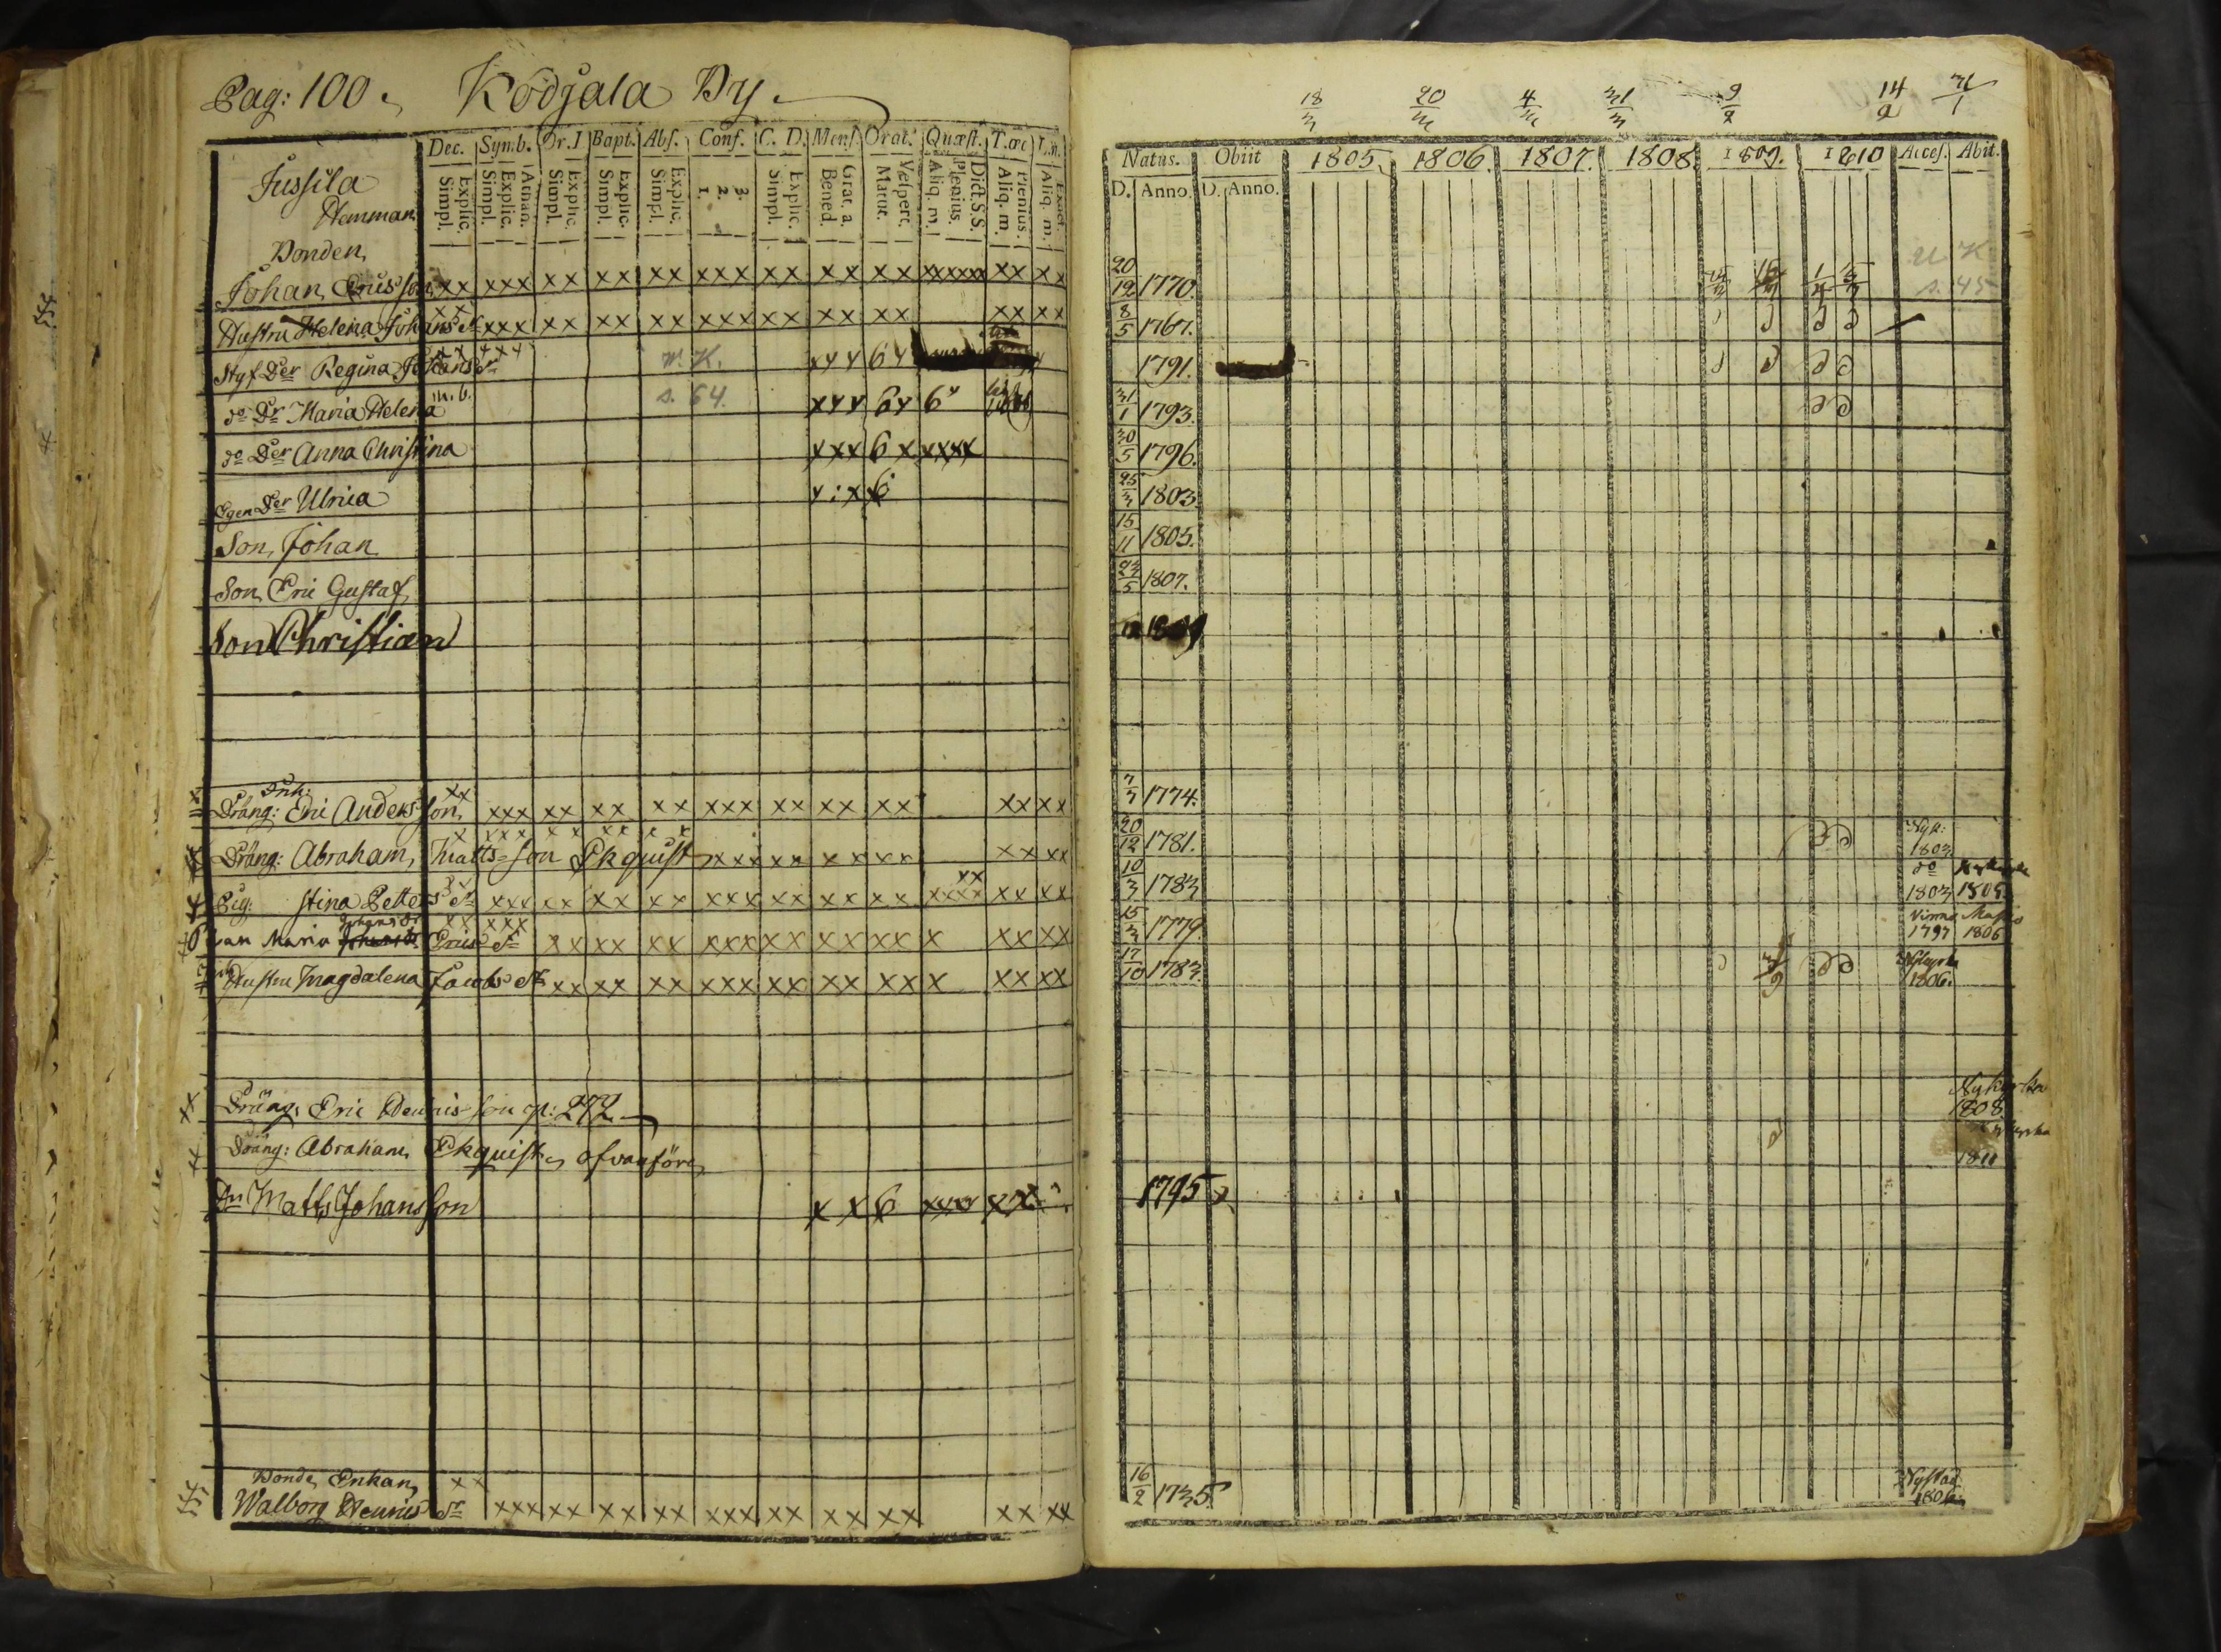 Pag: 100. Kodjala By
Dec. Symb. Or. D Bapt. Abs. Conf. C. D. Mens. Orat. Quæst. T. œc
Explic. Simpl. Athan. Explic. Simpl. Explic. Simpl. Explic. Simpl. Explic. Simpl. 3. 2. 1. Explic. Simpl. Grat. a. Bened. Vespert. Matut. Dict. S.S. Plenius. Aliq. m. Plenius. Aliq. m. Aliq. m.
Jussila
Hemman
Bonden
Johan Ericsson xx xxx xx xx xx xxx xx xx xx xxxxxx xx xx
Hustru Helena Johans Dr xx xxx xx xx xx xxx xx xx xx xx xx
Styf Der Regina Johans Dr xx xxx n. K. xxx 6x
do Dr Maria Helena m. b. s. 64 xxx 6x 6x
do Der Anna Christina xxx 6 x xxxx
Egen Der Ulrica x:xx6
Son Johan
Son Eric Gustaf
Son Christian
Inh:
Dräng: Eric Andersson xx xxx xx xx xx xxx xx xx xx xx xx
Dräng: Abraham Mattsson Ekquist x xxx xx xx xx xxx xx xx xx xx xx
Pig: Stina Petters Dr xx xxx xx xx xx xxx xx xx xx xxxx xx xx
Maria Johans Dr Erics Dr xx xxx xx xx xx xxx xx xx xx x xx xx
Hustru Magdalena Jacobs Dr xx xx xx xxx xx xx xx x xx xx
Dräng: Eric Henricsson p: 272
Dräng: Abraham Ekquist, ofvanföre
Dn Matts Johansson x x 6 xxxx xx
Bonde Enkan xx
Walborg Henrics Dr xxx xx xx xx xxx xx xx xx xx xx
18/3 20/3 4/3 31/3 9/2 14/2 31/1
Natus. Obiit 1805. 1806. 1807. 1808. 1809. 1810 Acces. Abit.
D. Anno. D. Anno.
20/12 1770. n. K. s. 45
8/5 1767.
1791.
31/1 1793.
30/5 1796.
25/3 1803.
15/11 1805.
23/5 1807.
7/7 1774.
20/12 1781. Nyk: 1803.
10/3 1783 do 1803 1805.
15/3 1779. Virmo 1797 Masko 1806
17/10 1783. Nykyrka 1806.
Nykyrka 1808.
1811
1795
16/2 1735. Nystad